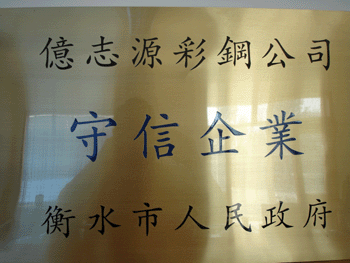 億志源彩鋼公司
守信企業
衡水市人民政府